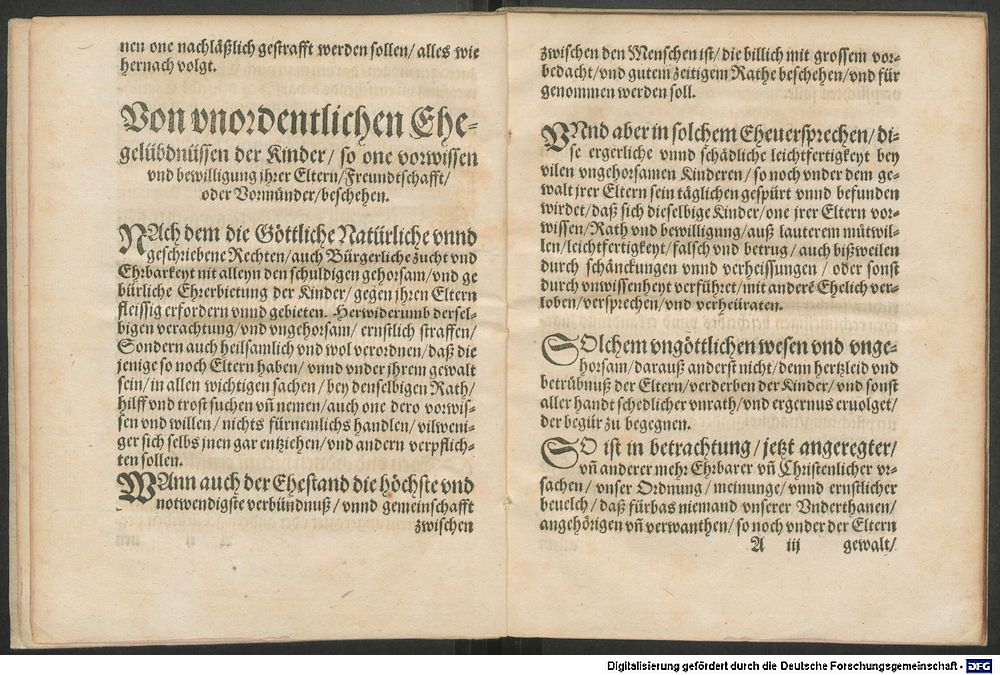 nen one nachläßlich gestrafft werden sollen/ alles wie
hernach volgt.
Von vnordentlichen Ehe-
gelübdnüssen der Kinder/ so one vorwissen
vnd bewilligung jhrer Eltern/Freundtschafft/
oder Vormünder/beschehen.
NAch dem die Göttliche Natürliche vnnd
geschriebene Rechten/auch Bürgerliche zucht vnd
Ehrbarkeyt nit alleyn den schuldigen gehorsam/vnd ge
bürliche Ehrerbietung der Kinder/ gegen jhren Eltern
fleissig erfordern vnnd gebieten. Herwiderumb dersel-
bigen verachtung/vnd vngehorsam/ ernstlich straffen/
Sondern auch heilsamlich vnd wol verordnen/daß die
jenige so noch Eltern haben/ vnnd vnder jhrem gewalt
sein/in allen wichtigen sachen/ bey denselbigen Rath/
hilff vnd trost suchen vñ nemen/auch one dero vorwis-
sen vnd willen/ nichts fürnemlichs handlen/vilweni-
ger sich selbs jnen gar entziehen/vnd andern verpflich-
ten sollen.
WAnn auch der Ehestand die höchste vnd
notwendigste verbündnuß/ vnnd gemeinschafft
zwischen
zwischen den Menschen ist/ die billich mit grossem vor-
bedacht/vnd gutem zeitigem Rathe beschehen/vnd für
genommen werden soll.
VNnd aber in solchem Eheuersprechen/ di-
se ergerliche vnnd schädliche leichtfertigkeyt bey
vilen vngehorsamen Kinderen/ so noch vnder dem ge-
walt jrer Eltern sein täglichen gespürt vnnd befunden
wirdet/daß sich dieselbige Kinder/one jrer Eltern vor-
wissen/Rath vnd bewilligung/auß lauterem mütwil-
len/leichtfertigkeyt/falsch vnd betrug/ auch bißweilen
durch schänckungen vnnd verheissungen/ oder sonst
durch vnwissenheyt verführet/mit anderẽ Ehelich ver-
loben/versprechen/vnd verheüraten.
SOlchem vngöttlichen wesen vnd vnge-
horsam/darauß anderst nicht/denn hertzleid vnd
betrübnuß der Eltern/verderben der Kinder/vnd sonst
aller handt schedlicher vnrath/vnd ergernus eruolget/
der begür zu begegnen.
SO ist in betrachtung/ jetzt angeregter/
vñ anderer mehr Ehrbarer vñ Christenlicher vr-
sachen/ vnser Ordnung/meinunge/ vnnd ernstlicher
beuelch/ daß fürbas niemand vnserer Vnderthanen/
angehörigen vñ verwanthen/ so noch vnder der Eltern
A iij gewalt/
Digitalisierung gefördert durch die Deutsche Forschungsgemeinschaft - DFG